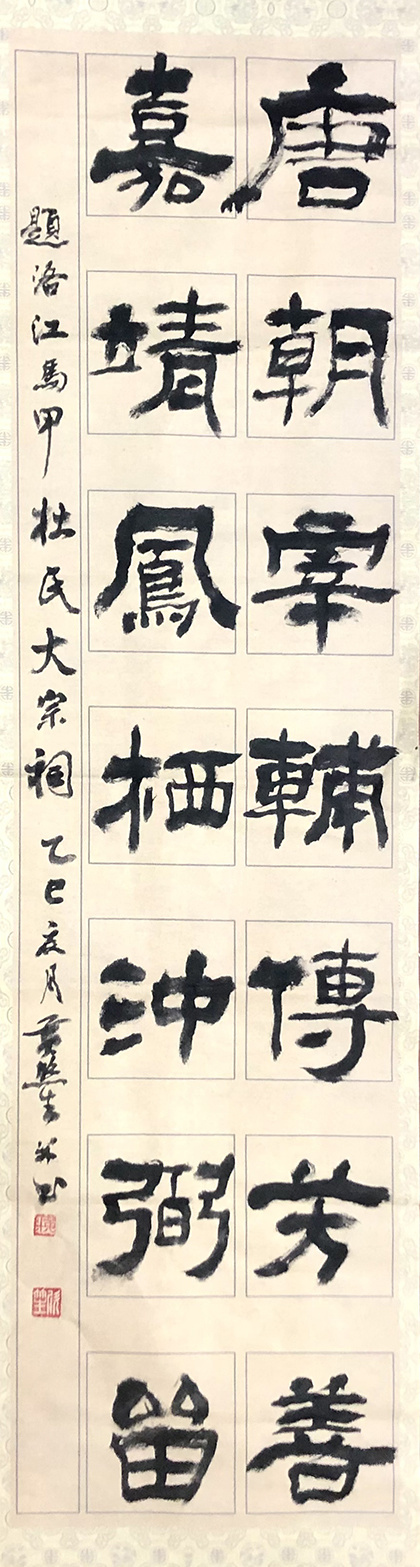 唐朝宰輔傳芳善
嘉靖鳳栖沖弼留
題洛江馬甲杜氏大宗祠 乙巳夏月 书